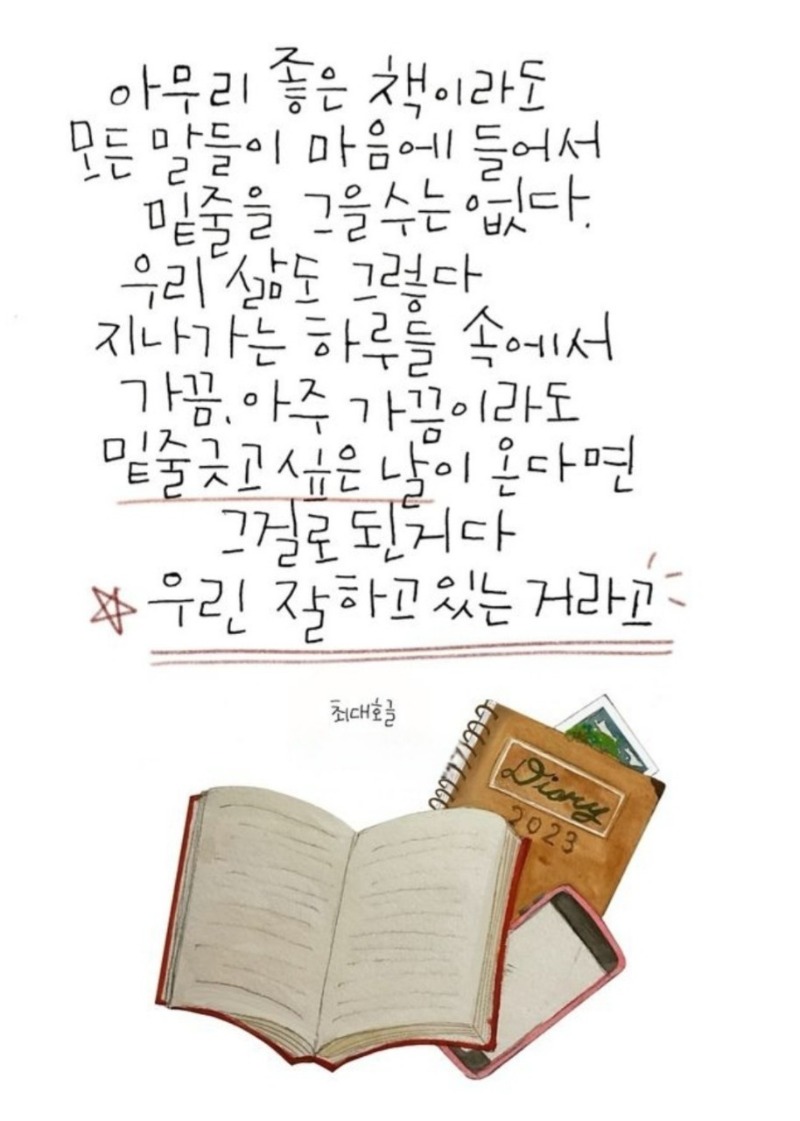 아무리 좋은 책이라도
모든 말들이 마음에 들어서
밑줄을 그을수는 없다.
우리 삶도 그렇다
지나가는 하루들 속에서
가끔, 아주 가끔이라도
밑줄긋고 싶은 날이 온다면
그걸로 된거다
우린 잘하고 있는 거라고
최대호글
Diary
2023